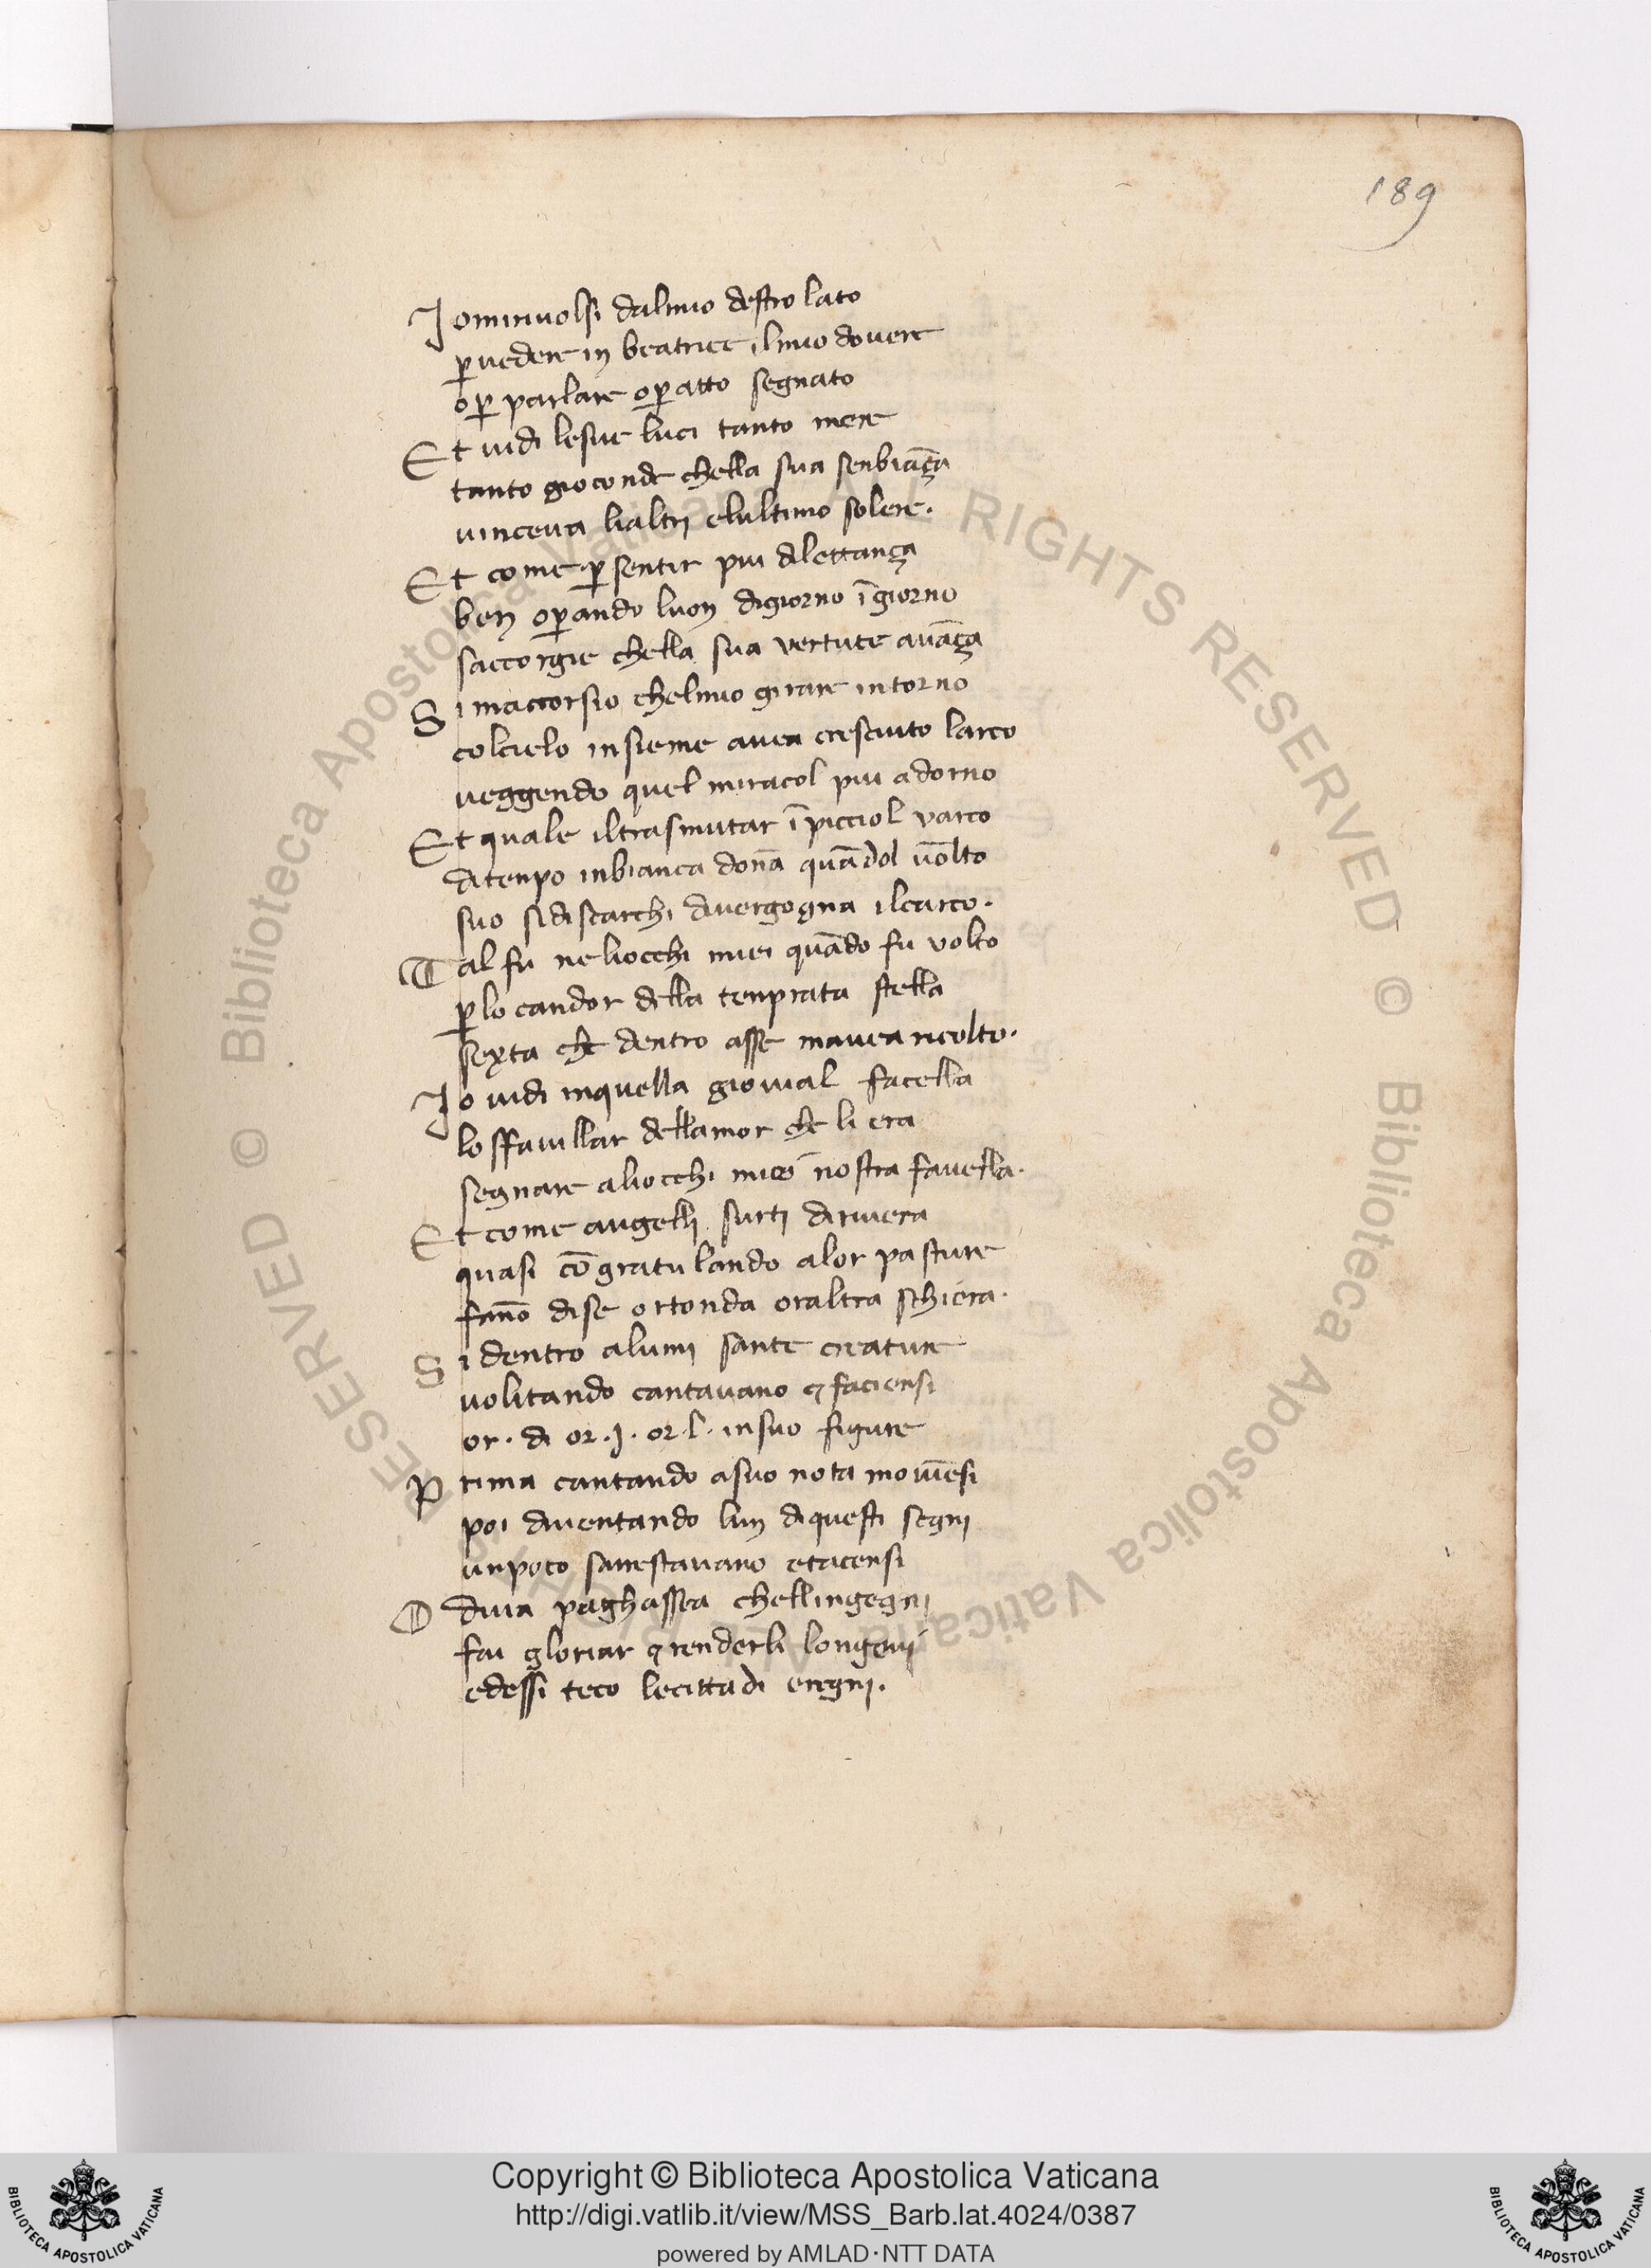 189
Iomirivolsi dalmio destro lato
ꝑ vedere in beatrice ilmio dovere
oꝑ parlare oꝑ atto segnato
Et vidi lesue luci tanto mere
tanto gioconde chella sua senbiāça
vinceva lialtri elultimo solere.
Et come ꝑ sentir piu dilettança
ben oꝑando luon digiorno ī giorno
saccorgie chella sua vertute avāça
Si maccorsio chelmio girare intorno
colcielo insieme avea cresciuto larco
veggendo quel miracol piu adorno
Et quale iltrasmutar ī picciol varco
ditenpo inbianca donā quādol vōlto
suo sidiscarchi divergogna ilcarco.
Tal fu neliocchi miei quādo fu volto
ꝑ lo candor della tenprata stella
sexta che dentro asse mavea ricolto.
Io vidi inquella giovial facella
lo sfavillar dellamor che li era
segnare aliocchi miei nostra favella.
Et come augelli surti dirivera
quasi cōgratulando alor pasture
fanō dise ortonda oraltra schiera.
Si dentro alumi sante creature
volitando cantavano ꝯ faciensi
or. di or .I. or .l. insuo figure
Prima cantando asuo nota moviēsi
poi diventando lun diquesti segni
unpoco sarrestavano etacensi
O diva peghassea chellingegni
fai gloriar ꝯ renderli longevi
edessi teco lecittadi eregni.
© Biblioteca Apostolica Vaticana ALL RIGHTS RESERVED © Biblioteca Apostolica Vaticana ALL RIGHTS RESERVED
Copyright © Biblioteca Apostolica Vaticana
http://digi.vatlib.it/view/MSS_Barb.lat.4024/0387
powered by AMLAD·NTT DATA
BIBLIOTECA APOSTOLICA VATICANA
BIBLIOTECA APOSTOLICA VATICANA